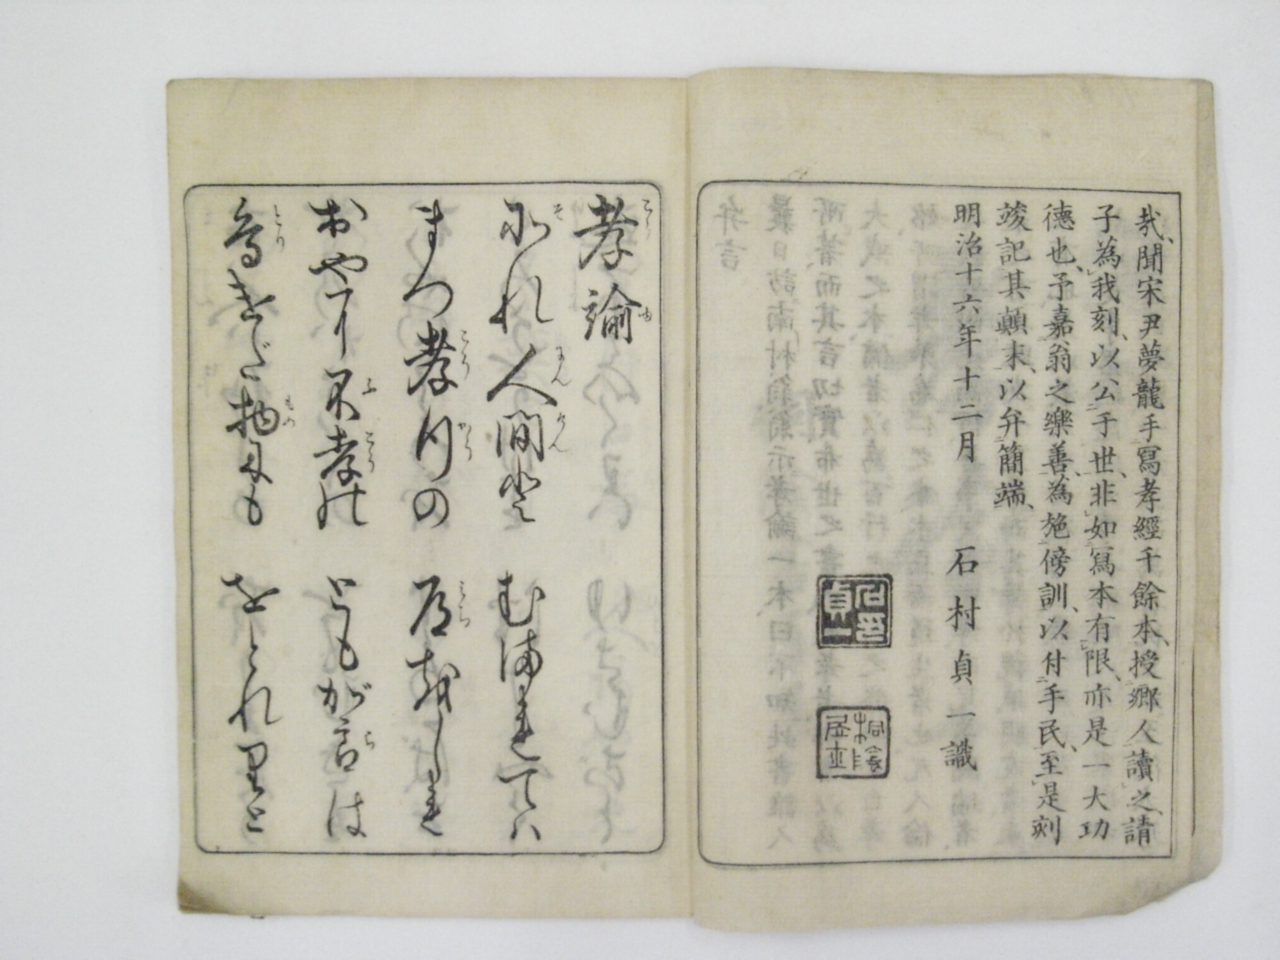 哉、聞宋尹夢龍手寫孝經千餘本、授郷人讀之、請
子為我刻、以公于世、非如寫本有限、亦是一大功
德也、予嘉翁之樂善、為施傍訓、以付手民、至是刻
竣記其顛末、以弁簡端、
明治十六年十二月　石村貞一識
孝諭
それ人間と　むまれてハ
まづ孝行の　道をしれ
おやに不孝の　ともがらは
鳥けだ物にも　をとれりと